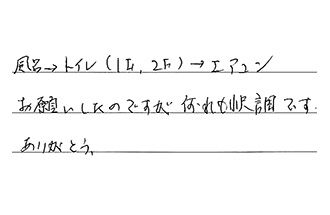 風呂→トイレ(1F,2F)→エアコン
お願いしたのですが何れも快調です.
ありがとう、